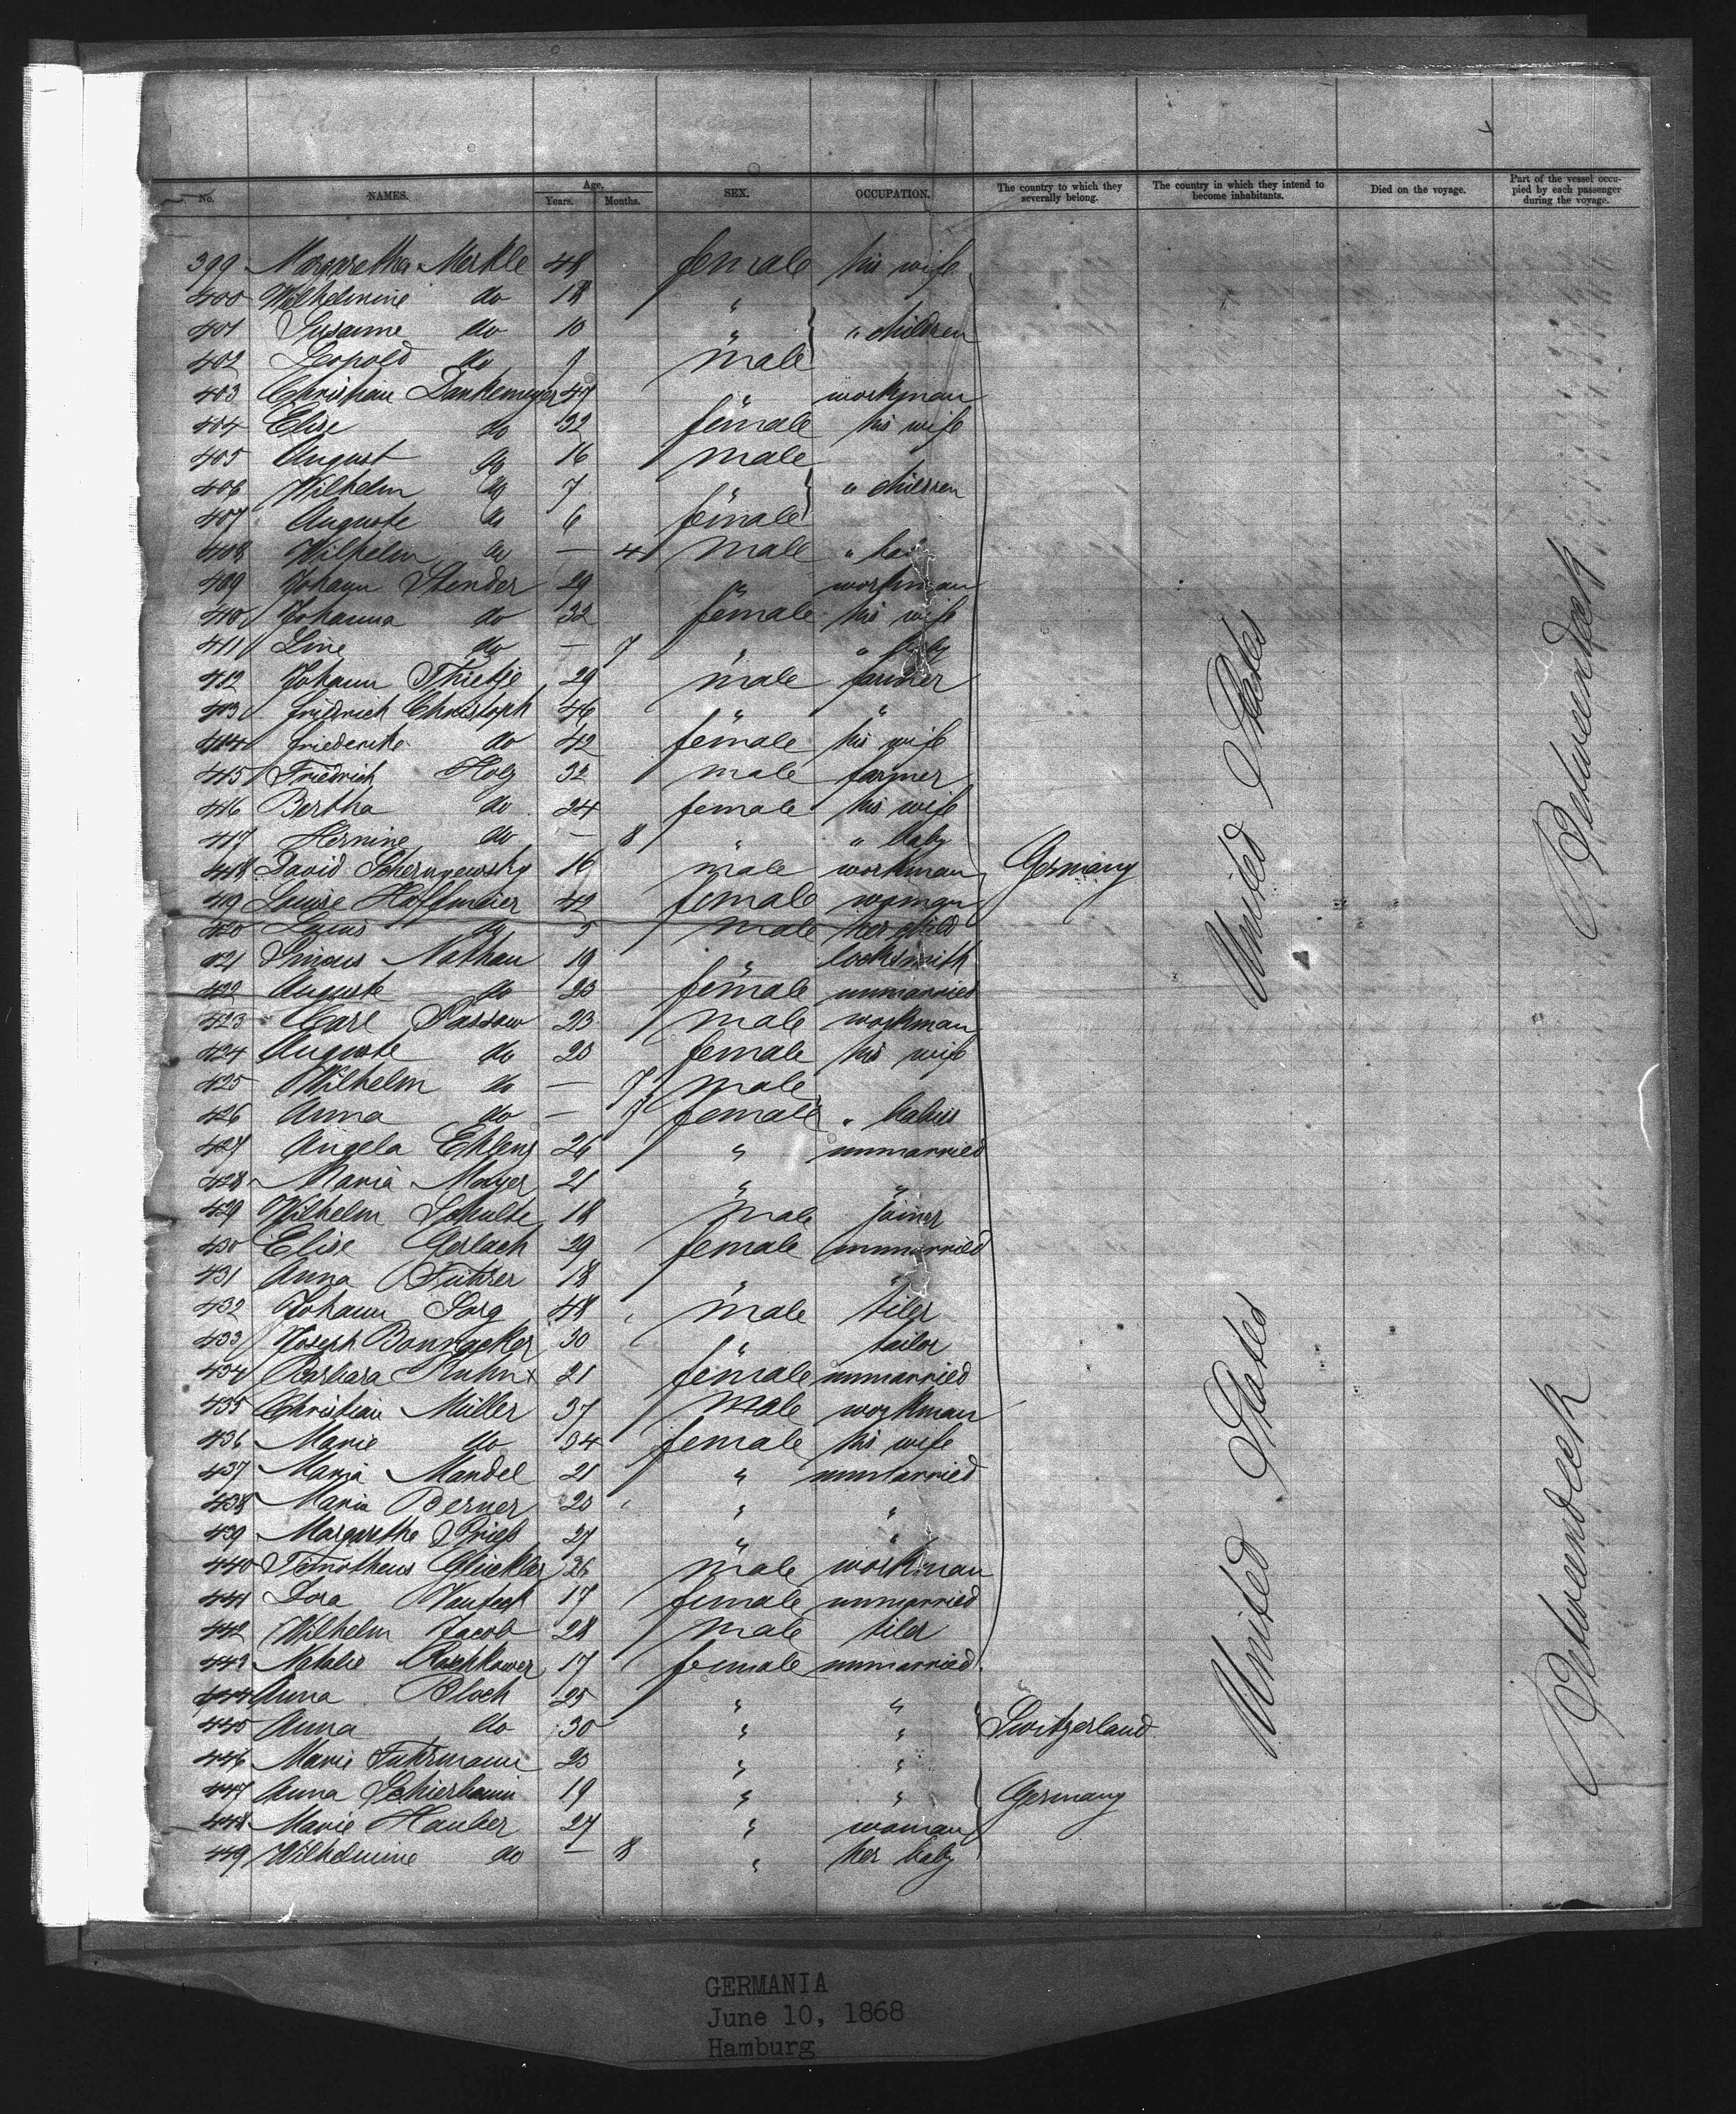 No. NAMES. Age. Years. Months. SEX. OCCUPATION. The country to which they severally belong. The country in which they intend to become inhabitants. Died on the voyage. Part of the vessel occupied by each passenger during the voyage.
399 Margaretha Merkle 48 female his wife
400 Wilhelmine do 18 "
401 Susanne do 10 " " children
402 Leopold do male
403 Christian Dankemeyer 47 " workman
404 Elise do 32 female his wife
405 August do 16 male
406 Wilhelm do 7 " " children
407 Auguste do 6 female
408 Wilhelm do — 4 male "
409 Johann Stender 29 " workman
410 Johanna do 32 female his wife
411 Line do — 7 " " baby
412 Johann Thietje 29 male farmer
413 Friedrich Christoph 46 " "
414 Friederike do 42 female his wife
415 Friedrich Holz 32 male farmer
416 Bertha do 24 female his wife
417 Hermine do — 8 " " baby
418 David 16 male workman Germany
419 Louise Hoffmeier 42 female woman
420 Louis do 5 male her child
421 Simons Nathan 19 " locksmith
422 Auguste do 23 female unmarried
423 Carl Passow 23 male workman
424 Auguste do 23 female his wife
425 Wilhelm do — 7 male
426 Anna do — 7 female " babies
427 Angela Ehlens 26 " unmarried
428 Maria Mayer 21 " "
429 Wilhelm Schulte 18 male joiner
430 Elise Gerlach 29 female unmarried
431 Anna Führer 18 " "
432 Johann Sorg 48 male tiler
433 Joseph Bonnacker 30 " tailor
434 Barbara Kuhn x 21 female unmarried
435 Christian Müller 37 male workman
436 Marie do 34 female his wife
437 Maria Mandel 21 " unmarried
438 Maria Berner 23 " "
439 Margaretha 27 " "
440 Timotheus Glückler 26 male workman
441 Dora 17 female unmarried
442 Wilhelm Jacob 28 male tiler
443 Natalie 17 female unmarried
444 Anna Bloch 25 " "
445 Anna do 30 " " Switzerland
446 Marie Fuhrmann 23 " "
447 Anna Schierbaum 19 " " Germany
448 Marie Hauber 27 " woman
449 Wilhelmine do — 8 " her baby
United States
United States
Betweendeck
Betweendeck
GERMANIA
June 10, 1868
Hamburg